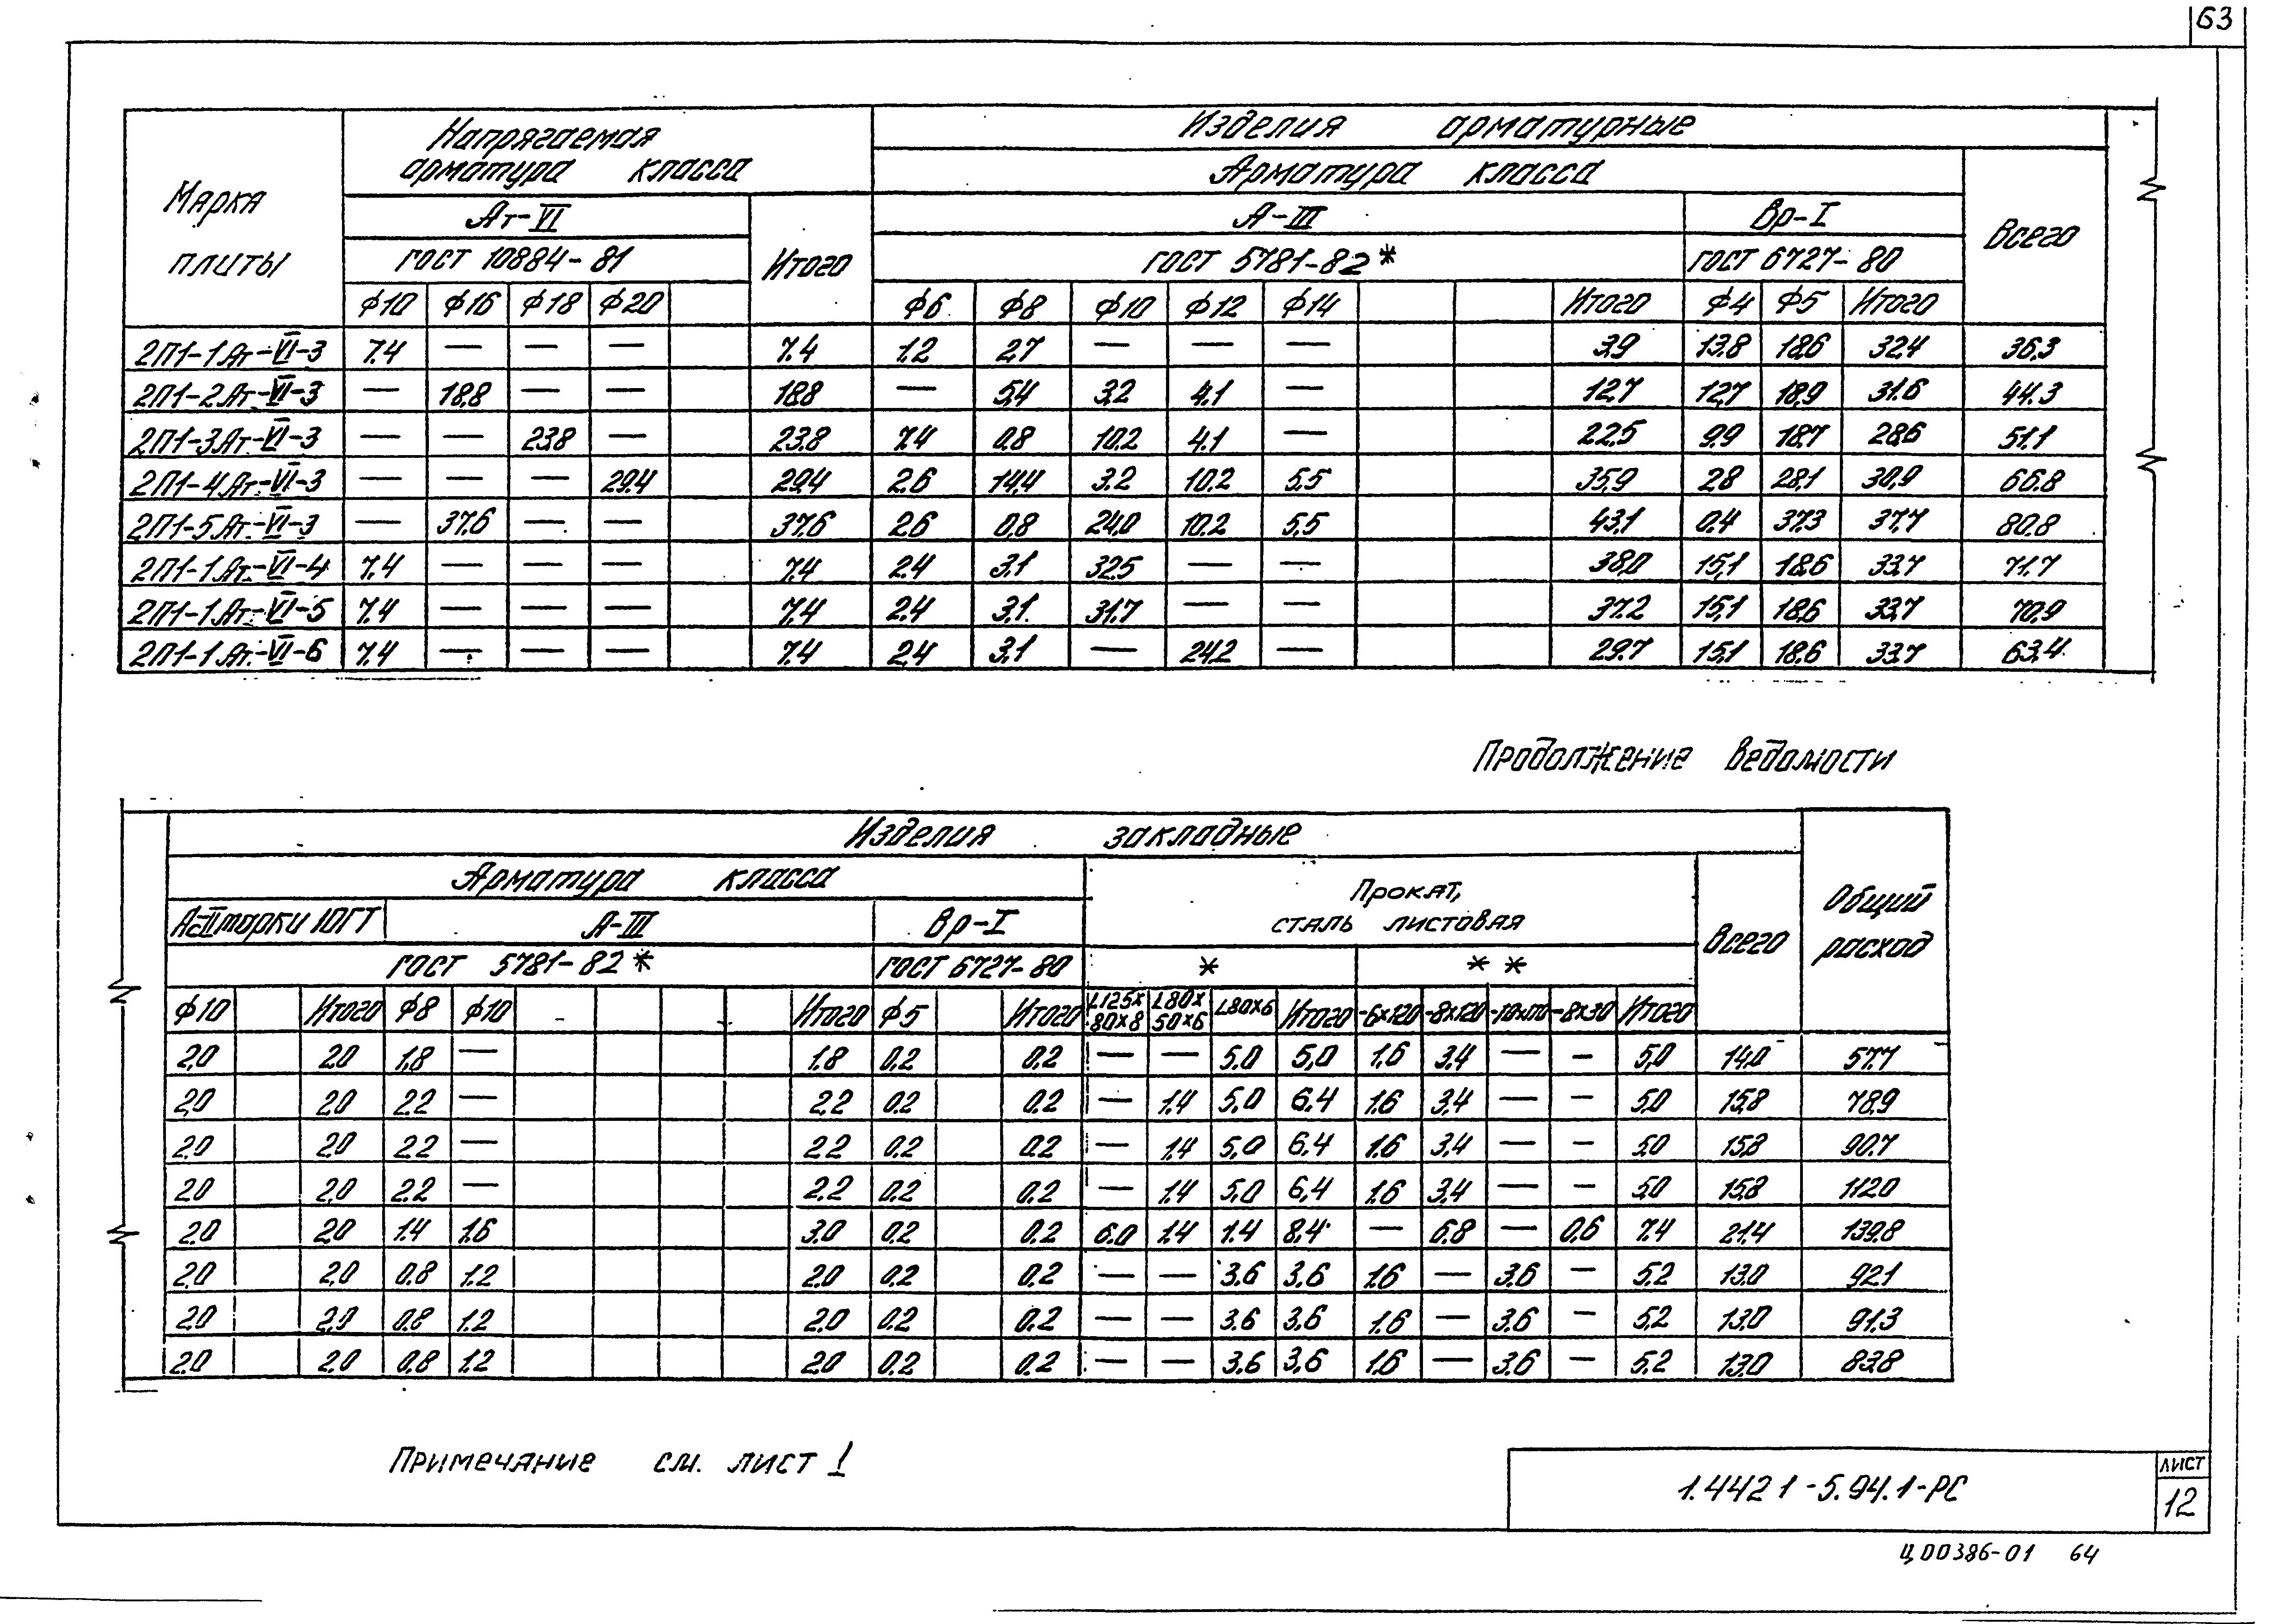 63
Напрягаемая арматура класса
Изделия арматурные
Арматура класса
Марка плиты
Ат-VI
Итого
А-III
Вр-I
Всего
ГОСТ 10884-81
ГОСТ 5781-82*
ГОСТ 6727-80
ф10 ф16 ф18 ф20 ф6 ф8 ф10 ф12 ф14 Итого ф4 ф5 Итого
2П1-1Ат-VI-3 7.4 — — — 7.4 1.2 2,7 — — — 3,9 13.8 18,6 32,4 36,3
2П1-2Ат-VI-3 — 18,8 — — 18,8 — 5,4 3,2 4.1 — 12,7 12,7 18,9 31.6 44.3
2П1-3Ат-VI-3 — — 23,8 — 23,8 7,4 0.8 10.2 4.1 — 22,5 9,9 18,7 28,6 51.1
2П1-4Ат-VI-3 — — — 29,4 29,4 2.6 14,4 3.2 10.2 5.5 35,9 2,8 28,1 30,9 66.8
2П1-5Ат-VI-3 — 37.6 — — 37,6 2.6 0,8 24,0 10.2 5,5 43,1 0,4 37,3 37,7 80.8
2П1-1Ат-VI-4 7.4 — — — 7,4 2,4 3.1 32,5 — — 38,0 15,1 18,6 33,7 71.7
2П1-1Ат-VI-5 7.4 — — — 7,4 2,4 3,1 31.7 — — 37,2 15,1 18,6 33,7 70,9
2П1-1Ат-VI-6 7,4 — — — 7,4 2,4 3,1 — 24,2 — 29,7 15,1 18.6 33,7 63,4
Продолжение ведомости
Изделия закладные
Общий расход
Арматура класса
Прокат, сталь листовая
Всего
А-II марки 10ГТ А-III Вр-I
ГОСТ 5781-82* ГОСТ 6727-80 * **
ф10 Итого ф8 ф10 Итого ф5 Итого L125х80х8 L80х50х6 L80х6 Итого -6х120 -8х120 -8х30 Итого
2,0 2,0 1,8 — 1.8 0.2 0.2 — — 5.0 5,0 1.6 3.4 — — 5,0 14,0 57,7
2,0 2,0 2,2 — 2,2 0.2 0.2 — 1.4 5,0 6.4 1.6 3,4 — — 5,0 15,8 78,9
2,0 2,0 2,2 — 2,2 0.2 0.2 — 1.4 5,0 6,4 1.6 3,4 — — 5,0 15,8 90.7
2.0 2,0 2,2 — 2,2 0.2 0.2 — 1.4 5,0 6,4 1.6 3,4 — — 5,0 15,8 112,0
2.0 2,0 1.4 1.6 3,0 0.2 0.2 6.0 1.4 1.4 8.4 — 6.8 — 0,6 7.4 21,4 139,8
2.0 2,0 0.8 1.2 2,0 0.2 0.2 — — 3.6 3.6 1.6 — 3.6 — 5,2 13,0 92,1
2.0 2,0 0.8 1.2 2,0 0.2 0.2 — — 3.6 3.6 1.6 — 3.6 — 5,2 13,0 91.3
2.0 2.0 0.8 1.2 2,0 0.2 0.2 — — 3.6 3,6 1.6 — 3.6 — 5.2 13,0 83,8
Примечание см. лист 1
1.442 1-5.94.1-РС
ЛИСТ
12
Ц00386-01 64